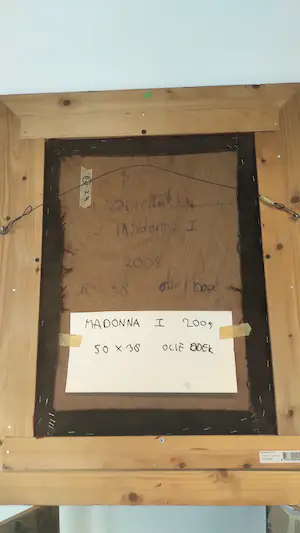 Madonna I
2008
50 x 38 olie / doek
MADONNA I 2009
50 x 38 OLIE DOEK